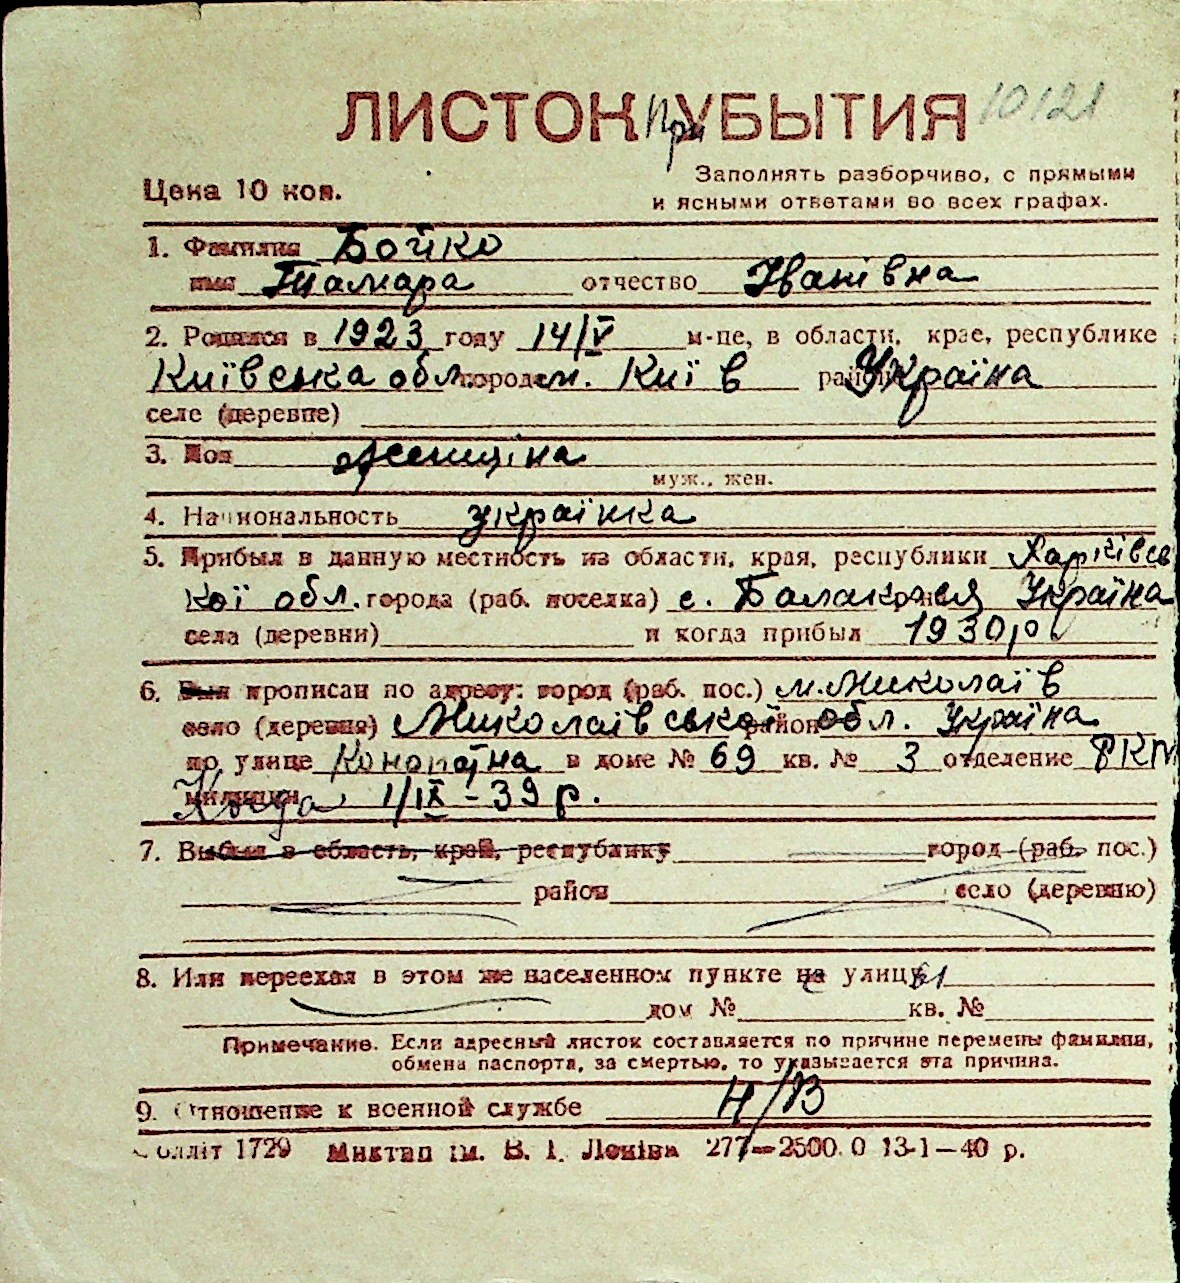 ЛИСТОК При УБЫТИЯ 10121
Цена 10 коп.
Заполнять разборчиво, с прямыми
и ясными ответами во всех графах.
1. Фамилия Бойко
имя Тамара отчество Іванівна
2. Родился в 1923 году 14/V м-це, в области, крае, республике
Київська обл. городе м. Київ район Україна
селе (деревне)
3. Пол женщіна
муж., жен.
4. Национальность українка
5. Прибыл в данную местность из области, края, республики Харківсь
кої обл. города (раб. поселка) с. Балаклея Україна
села (деревни) и когда прибыл 1930 р.
6. Был прописан по адресу: город (раб. пос.) м. Миколаїв
село (деревня) Миколаївської район обл. Україна
по улице в доме № 69 кв. № 3 отделение РКМ
милиции Когда 1/IX - 39 р.
7. Выбыл в область, край, республику город (раб. пос.)
район село (деревню)
8. Или переехал в этом же населенном пункте на улицу
дом № кв. №
Примечание. Если адресный листок составляется по причине перемены фамилии,
обмена паспорта, за смертью, то указывается эта причина.
9. Отношение к военной службе Н/В
1729 Миктип ім. В. І. Леніна 277—2500.0 13-1—40 р.